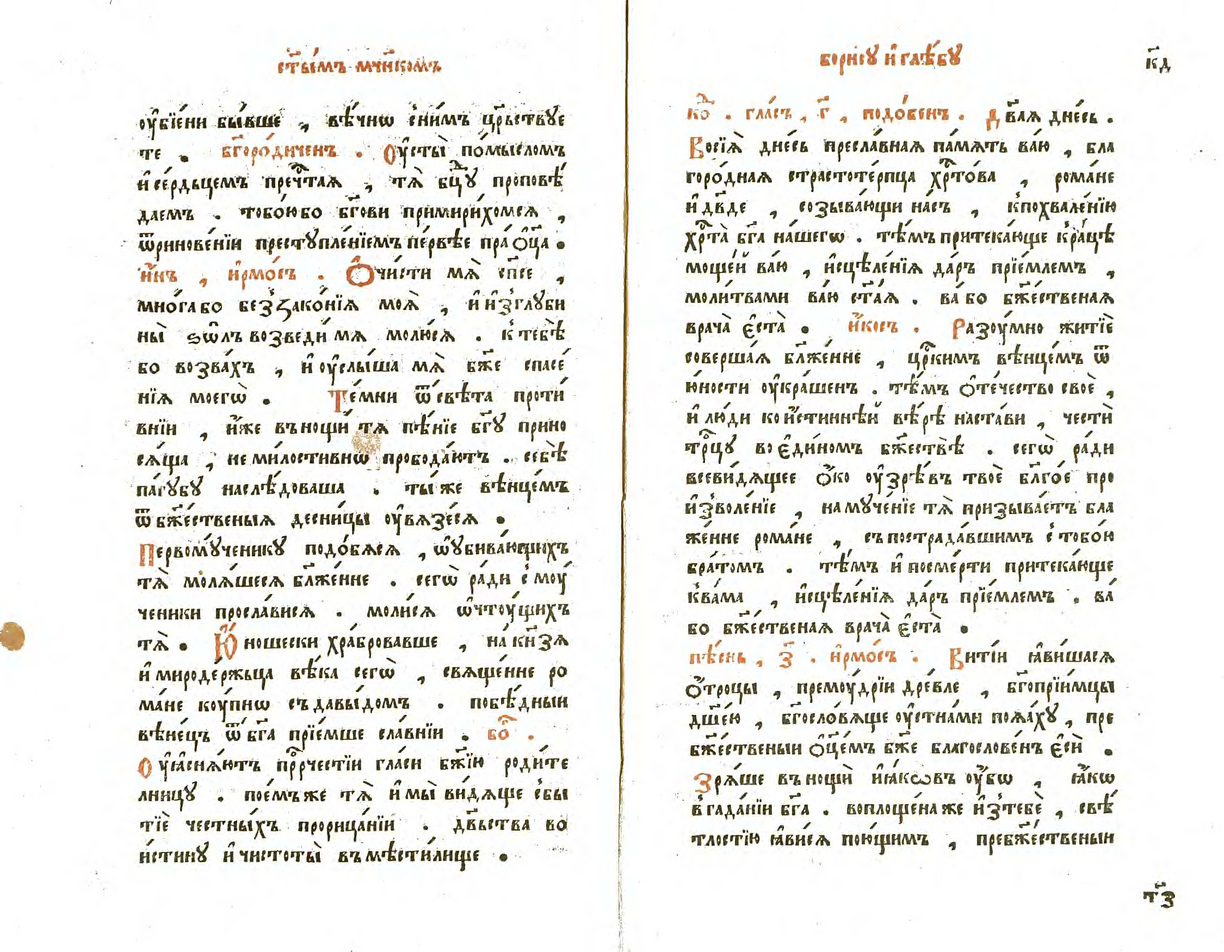 ст҃ы́мъ мч҃нкомъ
ᲂу҆бїени бы́вше , вѣ́чнѡ сни́мъ цр҃ьствꙋе
те . бг҃оро́диченъ . Оу҆сты̀ по́мысломъ
и҆ се́рдьцемъ пречⷭ҇тая , тѧ̀ бцⷣꙋ проповѣ́
даемъ . тобо́ю бо бг҃ови примири́хомсѧ ,
ѿриновени́и престꙋпле́нїемъ пе́рвѣе пра ѻ҆ц҃а .
и҆́нъ , і҆рмо́съ . Ѻ҆чи́сти мѧ̀ сп҃се ,
мно́га бо беззако́нїѧ моѧ̀ , и҆ и҆зглꙋби
ны̀ ѕѡ́лъ возведи́ мѧ молю́сѧ . к тебѣ́
бо возва́хъ , и҆ ᲂу҆слы́ша мѧ̀ бж҃е спасе́
нїѧ моегѡ̀ . Те́мни ѿ свѣ́та проти́
внїи , и҆́же въ нощѝ тѧ̀ пѣ́нїе бг҃ꙋ прино
сѧ́ща , не ми́лостивнѡ прободаю́тъ . себѣ̀
па́гꙋбꙋ наслѣ́доваша . ты́ же вѣнце́мъ
ѿ бж҃е́ственыѧ десни́цы ᲂу҆вѧзе́сѧ .
Первомꙋ́ченикꙋ подо́бѧсѧ , ѡ҆ ᲂу҆бива́ющихъ
тѧ̀ молѧ́шесѧ блаже́нне . сегѡ̀ ра́ди с моу́
ченики просла́висѧ . моли́сѧ ѡ҆ чтоу́щихъ
тѧ̀ . Ю҆́ношески хра́бровавше , на кн҃зѧ
и҆ мироде́ржьца вѣ́ка сегѡ̀ , свѧще́нне ро
ма́не коу́пнѡ съ дав́ыдомъ . побѣ́дныи
вѣне́цъ ѿ бг҃а прїе́мше сла́внїи . бо҃ .
Оу҆ѧсни́ѧютъ прⷪ҇рчестїи гла́си бж҃їю роди́те
лницꙋ . пое́мъ же тѧ̀ и҆ мы̀ ви́дѧще сбы
тїѐ че́стныхъ прорица́нїи . дв҃ьства во
и҆́стинꙋ и҆ чистоты̀ въ мѣсти́лище .
бори́сꙋ и҆ глѣ́бꙋ
к҃д
ко҃ . гла́съ , г҃ , подо́бенъ . дв҃ая дне́сь .
Восїѧ̀ дне́сь пресла́вная па́мять ва́ю , бла
горо́дная страстоте́рпца хрⷭ҇то́ва , рома́не
и҆ дв҃де , созыва́ющи на́съ , к похвале́нїю
хрⷭ҇та̀ бг҃а на́шегѡ . тѣ́мъ притека́юще к ра́цѣ
моще́й ва́ю , и҆сцѣле́нїѧ да́ръ прїе́млемъ ,
моли́твами ва́ю ст҃а́ѧ . ва́ бо бж҃е́ственая
врача̀ є҆ста̀ . и҆́косъ . Разꙋ́мно житїѐ
соверша́ѧ блаже́нне , црⷭ҇кимъ вѣнце́мъ ѿ
ю҆ности ᲂу҆кра́шенъ . тѣ́мъ ѻ҆те́чество своѐ ,
и҆ лю́ди ко и҆́стиннѣй вѣ́рѣ наста́ви , честѝ
трⷪ҇цꙋ во є҆ди́номъ бж҃ествѣ̀ . сегѡ̀ ра́ди
всеви́дѧщее ѻ҆́ко ᲂу҆зрѣ́въ твоѐ благо́е про
и҆зволе́нїе , на мꙋче́нїе тѧ̀ призыва́етъ бла
же́нне рома́не , съ пострада́вшимъ с тобо́ю
бра́томъ . тѣ́мъ и҆ по сме́рти притека́юще
к ва́ма , и҆сцѣле́нїѧ да́ръ прїе́млемъ . ва́
бо бж҃е́ственая врача̀ є҆ста̀ .
пѣ́снь , з҃ . і҆рмо́съ . Витїи ꙗ҆ви́шасѧ
ѻ҆́троцы , премоу́дрїи дре́вле , бг҃опрїи́мцы
дш҃е́ю , бг҃осло́вѧще ᲂу҆стна́ми поѧ́хꙋ , пре
бж҃е́ственыи ѻ҆ц҃е́мъ бж҃е благослове́нъ є҆сѝ .
Зрѧ́ше въ нощѝ и҆ꙗ́ковъ ᲂу҆́бѡ , ꙗ҆́кѡ
в гада́нїи бг҃а . воплоще́на же и҆з тебѐ , свѣ́
тлостїю ꙗ҆ви́сѧ пою́щимъ , пребж҃е́ственыи
т҃з